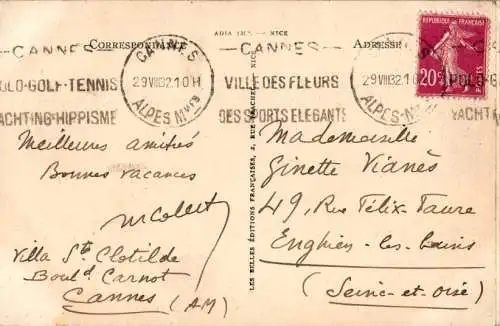 ADIA
NICE
CORRESPONDANCE
ADRESSE
CANNES
POLO-GOLF-TENNIS
YACHTING-HIPPISME
CANNES
29 VIII 32 10H
ALPES Mmes
CANNES
VILLE DES FLEURS
DES SPORTS ELEGANTS
29 VIII 32 10
ALPES-M
POLO-G
YACHT
REPUBLIQUE FRANÇAISE
20c
POSTES
LES BELLES ÉDITIONS FRANÇAISES, 2, RUE
NICE
Meilleures amitiés
Bonnes vacances
Villa Ste Clotilde
Bould Carnot
Cannes (AM)
Mademoiselle
Ginette Vianès
49, Rue Félix-Faure
Enghien-les-bains
(Seine-et-oise)